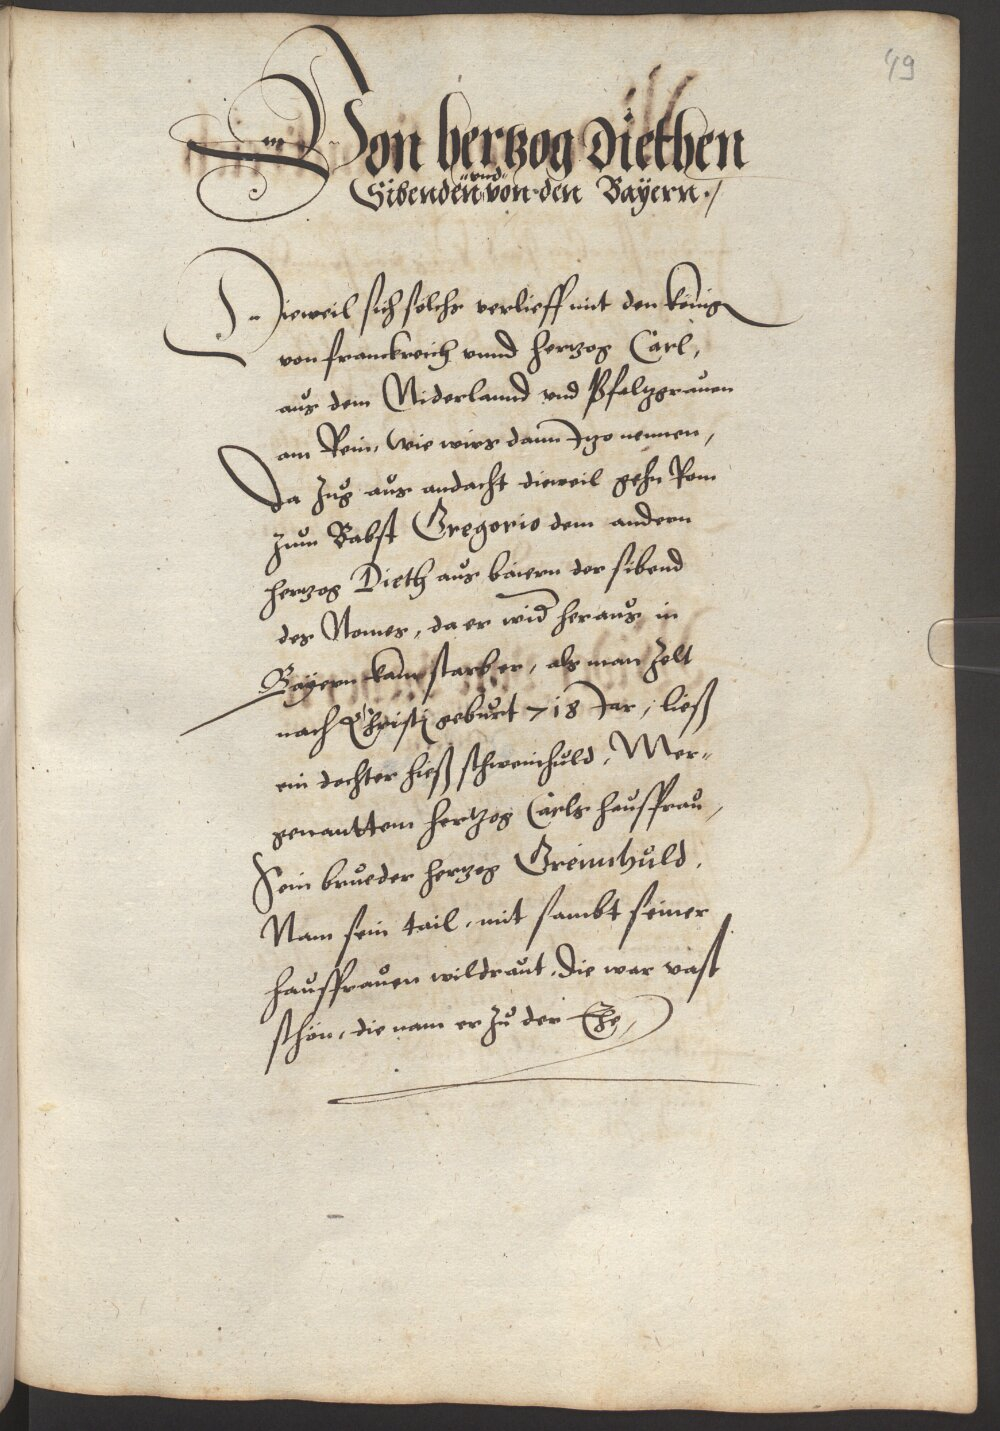 49
Von hertzog Diethen
Sibenden und von den Bayern.
Dieweil sich solchs verlieff mit den könig
von franckreich vnnd hertzog Carl,
aus dem Niderlannd vnd Pfaltzgrauen
am Rein, wie wirs dann Itzo nennen,
Da zug aus andacht dieweil gehn Rom
zum Babst Gregorio dem andern
hertzog Dieth aus baiern der sibend
des Nomes, da er wid heraus in
Bayern kam starb er, als man zelt
nach Christi geburt 718 Jar, ließ
ein dochter hieß schweinhuld, Mer-
genanttem hertzog Carls hausfrau,
Sein brueder hertzog Greimhuld.
Nam sein tail, mit sambt seiner
hausfrauen wildraut, die war vast
schön, die nam er zu der Ehe,